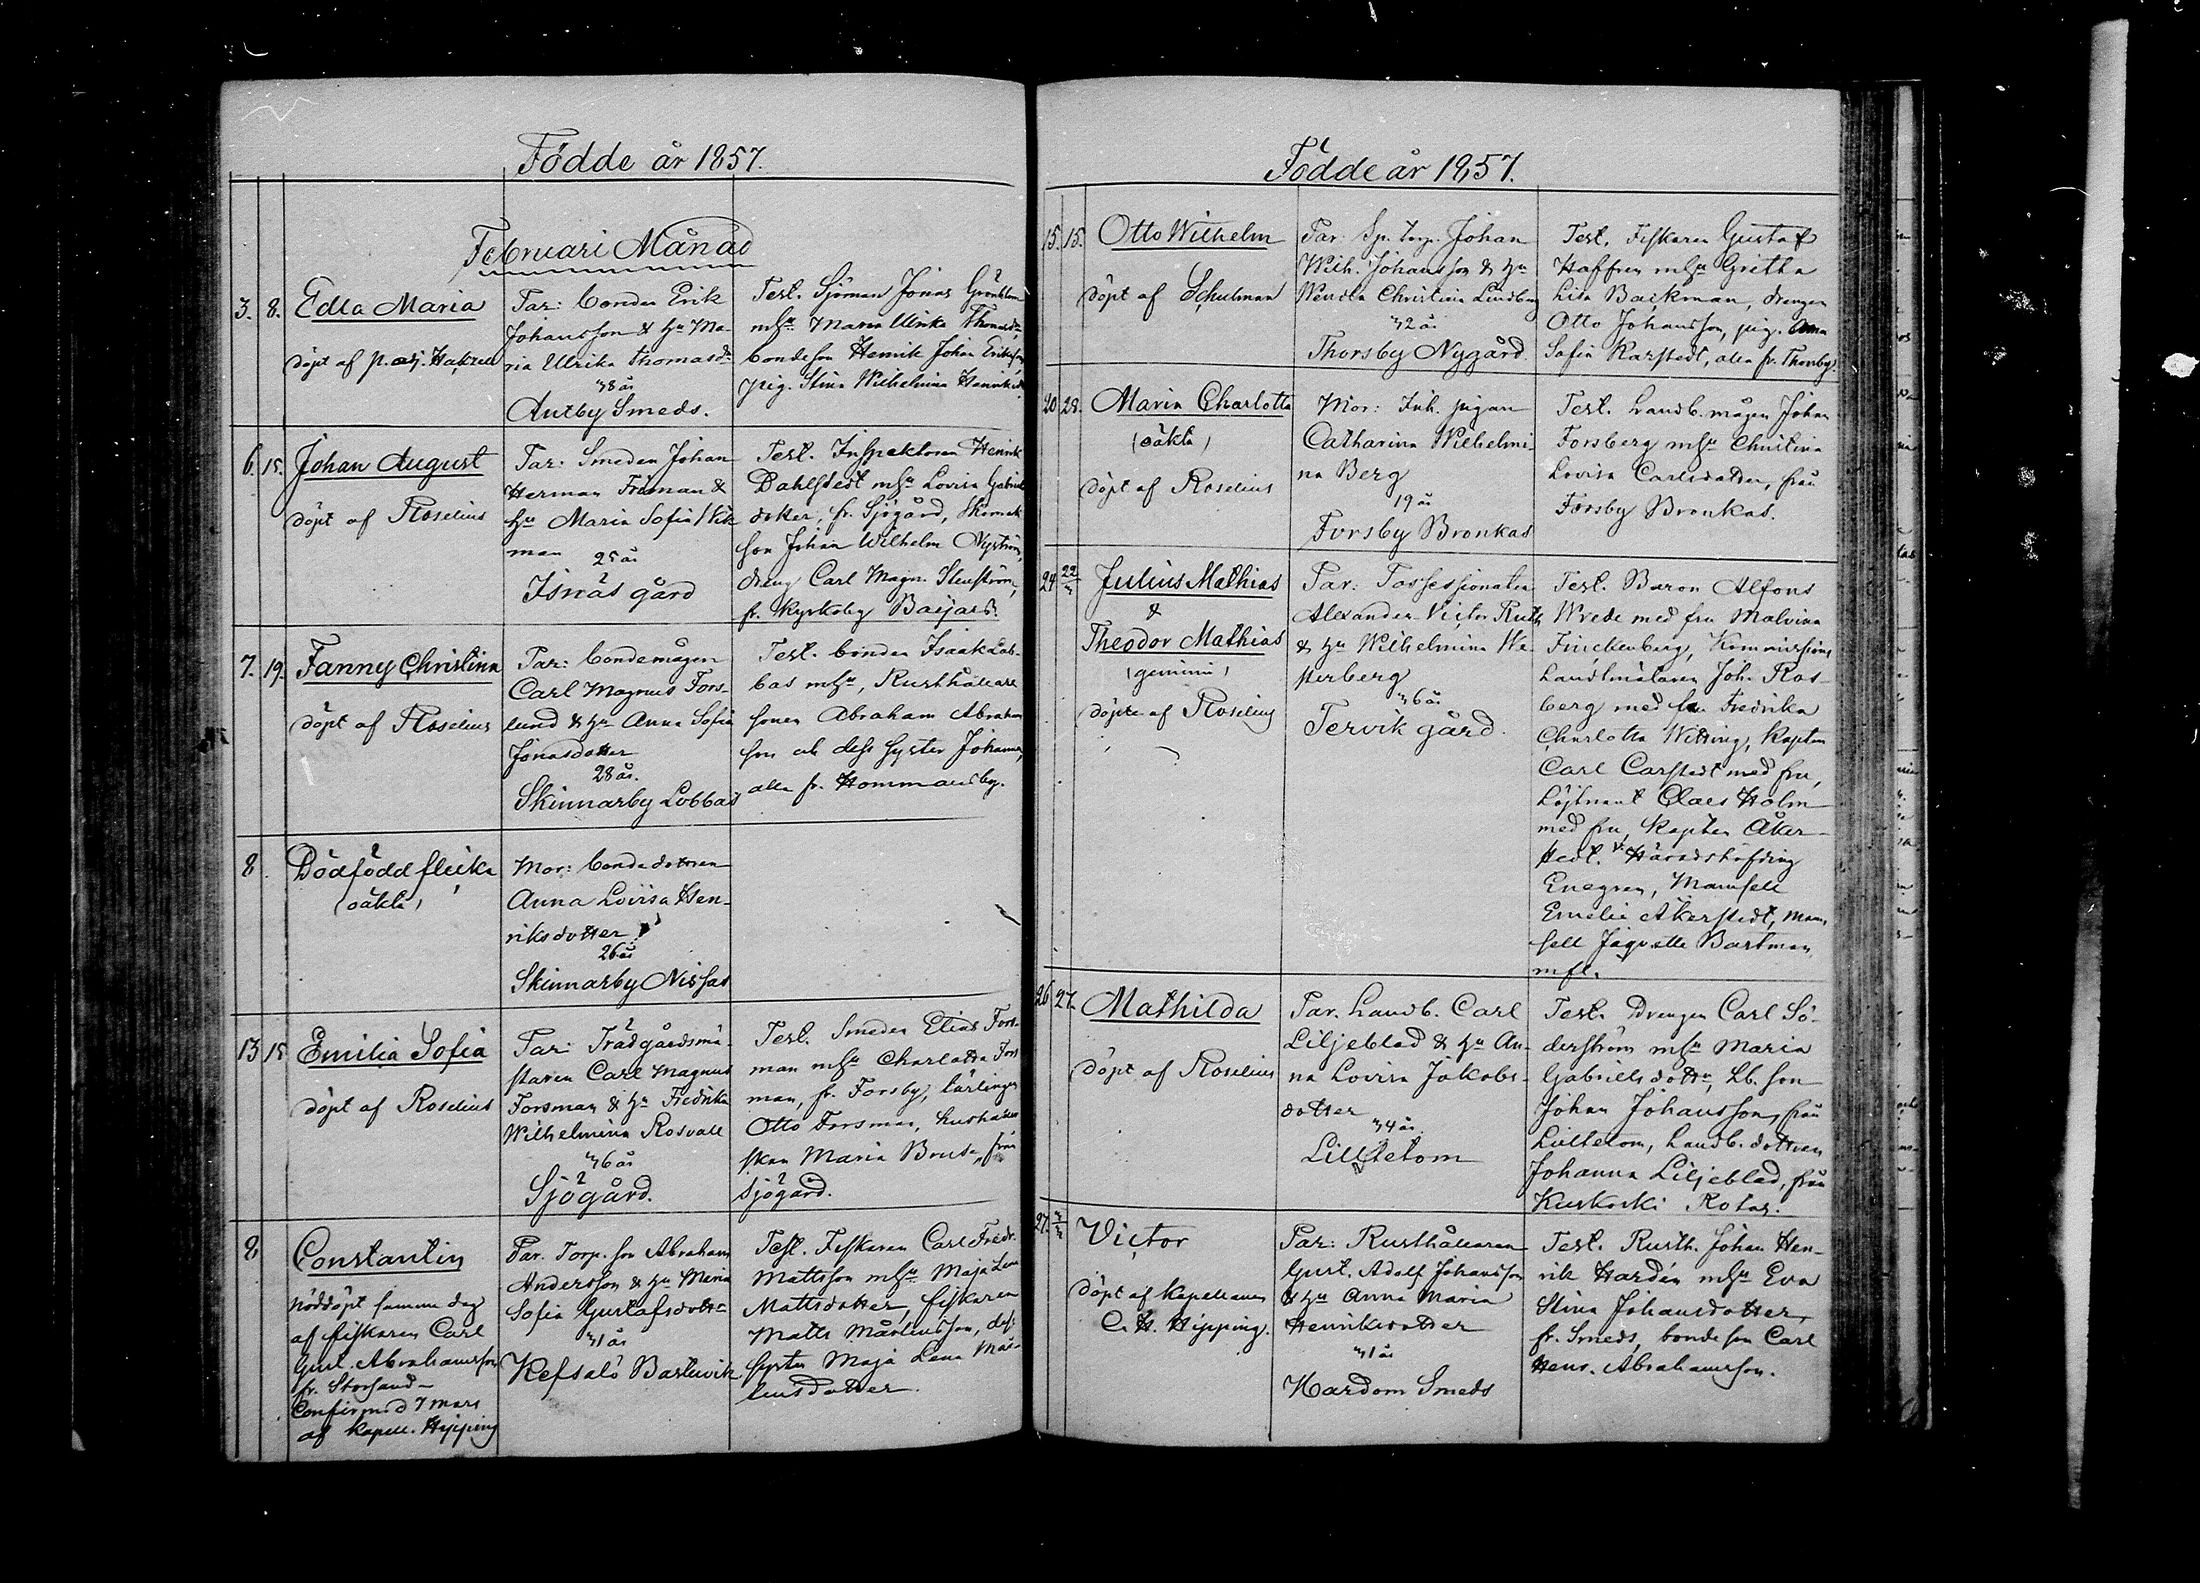 Födde år 1857.
Februari Månad
3. 8. Edla Maria
döpt af p. adj.
Far: bonden Erik
Johansson & hu Ma-
ria Ullrika Thomasdr
38 år
Antby Smeds.
Test. Sjöman Jonas
mhu Maria Ulrika Thomasdr
bondeson Henrik Johan Eriksson,
pig. Stina Wilhelmina
6. 15. Johan August
döpt af Roselius
Far: Smeden Johan
Herman Friman &
hu Maria Sofia Wik
man
25 år
Isnäs gård
Test. Inspektoren Henrik
Dahlstedt mhu Lovisa Gabriels
dotter, fr. Sjögård,
son Johan Wilhelm Nyström,
dräng Carl Magn. Stenström,
fr. Kyrkoby Baijars.
7. 19. Fanny Christina
döpt af Roselius
Far: bondemågen
Carl Magnus Fors-
lund & hu Anna Sofia
Jonasdotter
28 år.
Skinnarby Lobbas
Test. bonden Isaak Lob-
bas mhu, Rusthållare
sonen Abraham Abraham
son och dess syster Johanna,
alla fr. Hommansby.
8. Dödfödd flicka
(oäkta)
Mor: bondedottren
Anna Lovisa Hen-
riksdotter
26 år
Skinnarby Nissas
13 15 Emilia Sofia
döpt af Roselius
Far: Trädgårdsmä-
staren Carl Magnus
Forsman & hu Fredrika
Wilhelmina Rosvall
36 år
Sjögård.
Test. Smeden Elias Fors-
man mhu Charlotta Fors
man, fr. Forsby, lärlingen
Otto Forsman, hushåller
skan Maria Bruse, från
Sjögård.
8 Constantin
Nöddöpt samma dag
af fiskaren Carl
Gust. Abrahamsson
fr. Storsand -
Confirmed 7 mars
af Kapell. Hipping
Far. Torp. son Abraham
Andersson & hu Maria
Sofia Gustafsdotter
31 år
Kefsalö Bastuvik
Test. Fiskaren Carl Fredr.
Mattsson mhu Maja Lena
Mattsdotter, fiskaren
Matts Mårtensson, dess
syster Maja Lena Mår-
tensdotter.
Födde år 1857.
15. 15. Otto Wilhelm
döpt af Schulman
Far: Sp. torp. Johan
Wilh. Johansson & hu
Wendla Christina Lindberg
32 år
Thorsby Nygård.
Test. Fiskaren Gustaf
Haffren mhu Gretha
Lisa Backman, drengen
Otto Johansson, pig. Anna
Sofia Karstedt, alla fr. Thorsby
20 28. Maria Charlotta
(oäkta)
döpt af Roselius
Mor: Inh. pigan
Catharina Wilhelmi-
na Berg
19 år
Forsby Bronkas
Test. Landb. mågen Johan
Forsberg mhu Christina
Lovisa Carlsdotter, från
Forsby Bronkas.
24 22/3 Julius Mathias
&
Theodor Mathias
(gemini)
döpte af Roselius
Far: Possessionaten
Alexander Victor Ruth
& hu Wilhelmina We-
sterberg
36 år
Tervik gård.
Test. Baron Alfons
Wrede med fru Malvina
Finckenberg, Kommissions
Landtmätaren Joh. Ros-
berg med fru Fredrika
Charlotta Witting, Kapten
Carl Carstedt med fru,
Löjtnant Claes Holm
med fru, Kapten Åker-
stedt. V. Häradshöfding
Enegren, Mamsell
Emelie Åkerstedt, Mam-
sell Jaquette Bartman,
mfl.
26 27. Mathilda
döpt af Roselius
Far. Landb. Carl
Liljeblad & hu An-
na Lovisa Jakobs-
dotter
34 år
Lilltetom
Test. Drengen Carl Sö-
derström mhu Maria
Gabrielsdotter, Lb. son
Johan Johansson, från
Lilltetom, Landb. dottren
Johanna Liljeblad, från
Kuskoski Rotas.
27. 3/3 Victor
döpt af Kapellanen
C. H. Hipping.
Far: Rusthållaren
Gust. Adolf Johansson
& hu Anna Maria
Henriksdotter
31 år
Hardom Smeds
Test. Rusth. Johan Hen-
rik Hardén mhu Eva
Stina Johansdotter,
fr. Smeds, bondeson Carl
Henr. Abrahamsson.